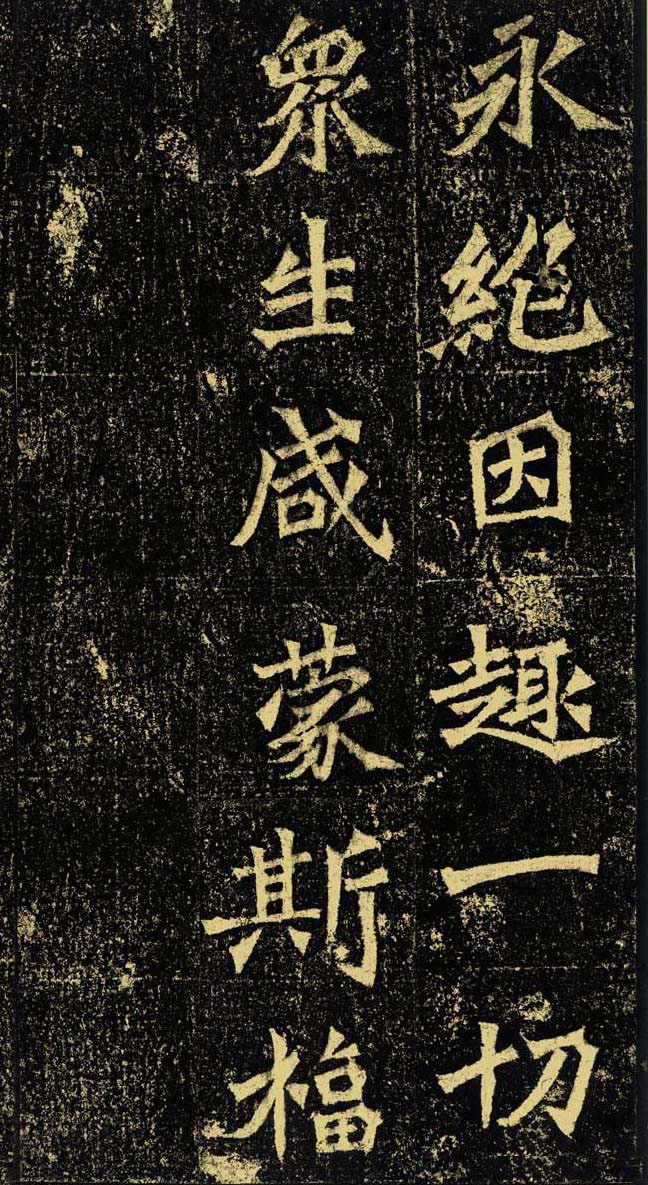 永絶因趣一切
衆生咸蒙斯福